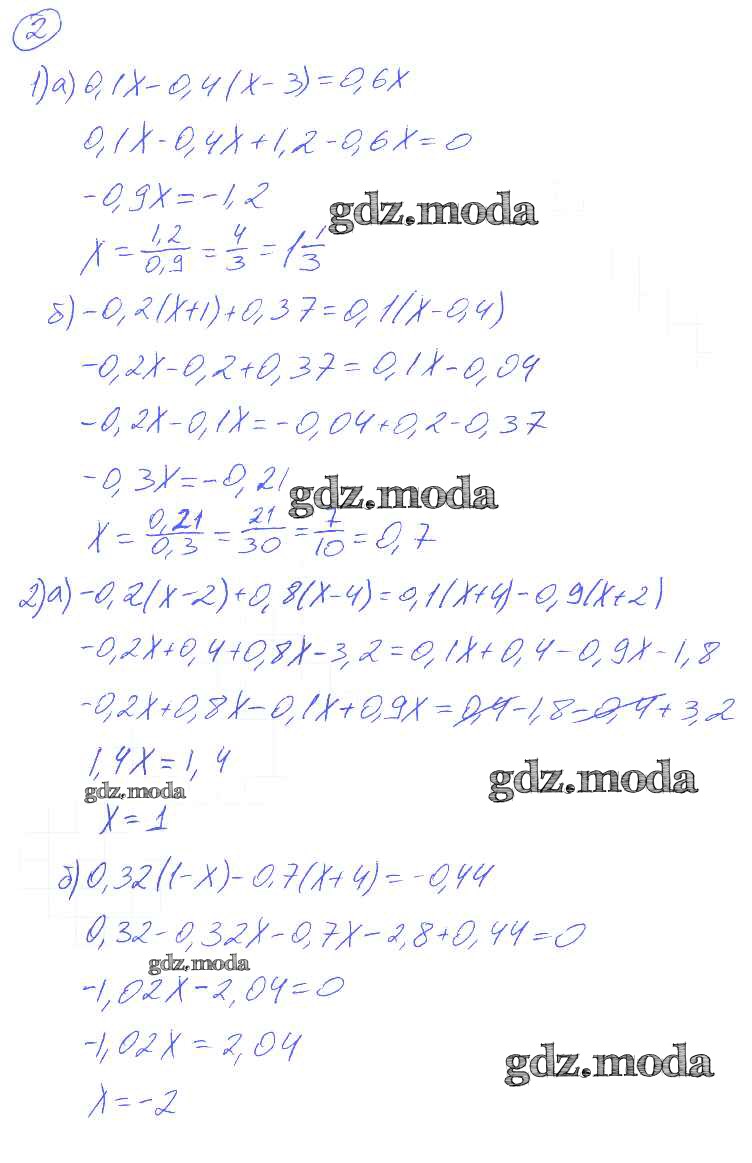 2
1)а) 0,1x-0,4(x-3)=0,6x
0,1x-0,4x+1,2-0,6x=0
-0,9x=-1,2
gdz.moda
x=1,2/0,9=4/3=1 1/3
б) -0,2(x+1)+0,37=0,1(x-0,4)
-0,2x-0,2+0,37=0,1x-0,04
-0,2x-0,1x=-0,04+0,2-0,37
-0,3x=-0,21
gdz.moda
x=0,21/0,3=21/30=7/10=0,7
2)а) -0,2(x-2)+0,8(x-4)=0,1(x+4)-0,9(x+2)
-0,2x+0,4+0,8x-3,2=0,1x+0,4-0,9x-1,8
-0,2x+0,8x-0,1x+0,9x=0,4-1,8-0,4+3,2
1,4x=1,4
gdz.moda
gdz.moda
x=1
б) 0,32(1-x)-0,7(x+4)=-0,44
0,32-0,32x-0,7x-2,8+0,44=0
gdz.moda
-1,02x-2,04=0
-1,02x=2,04
gdz.moda
x=-2